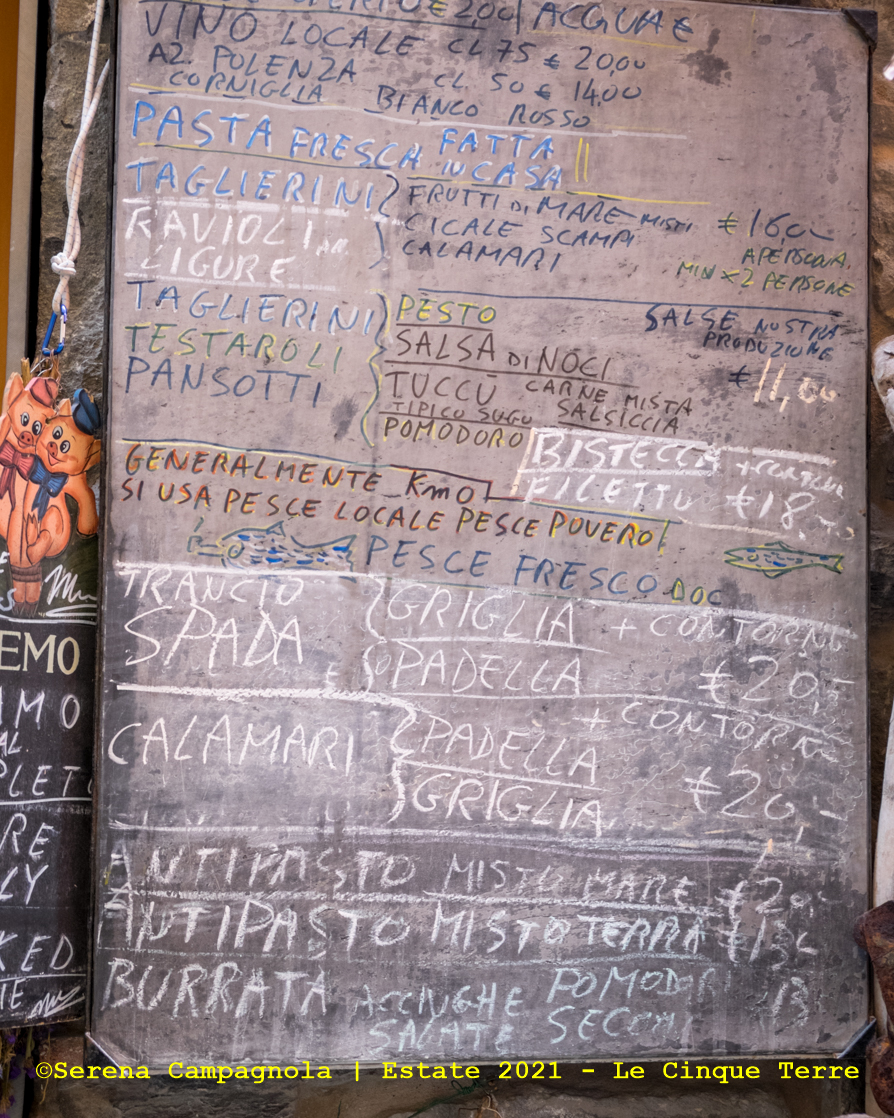 2,00 ACQUA €
VINO LOCALE CL 75 € 20,00
AZ. POLENZA CL. 50 € 14,00
CORNIGLIA BIANCO ROSSO
PASTA FRESCA FATTA
IN CASA !!
TAGLIERINI FRUTTI DI MARE MISTI € 16,00
RAVIOLI CICALE SCAMPI A PERSONA
LIGURE CALAMARI MIN X 2 PERSONE
TAGLIERINI PESTO SALSE NOSTRA
PRODUZIONE
TESTAROLI SALSA DI NOCI
PANSOTTI TUCCU CARNE MISTA € 11,00
TIPICO SUGO SALSICCIA
POMODORO
BISTECCA
FILETTO € 18,
GENERALMENTE KM0
SI USA PESCE LOCALE PESCE POVERO!
PESCE FRESCO DOC
TRANCIO GRIGLIA + CONTORNO
SPADA O PADELLA € 20,-
CALAMARI PADELLA + CONTORN
GRIGLIA € 20,-
ANTIPASTO MISTO MARE € 20,-
ANTIPASTO MISTO TERRA € 13
BURRATA ACCIUGHE POMODOR 13
SALATE SECCHI
EMO
AMO
AL.
PLET
RE
LY
KED
IE
©Serena Campagnola | Estate 2021 - Le Cinque Terre